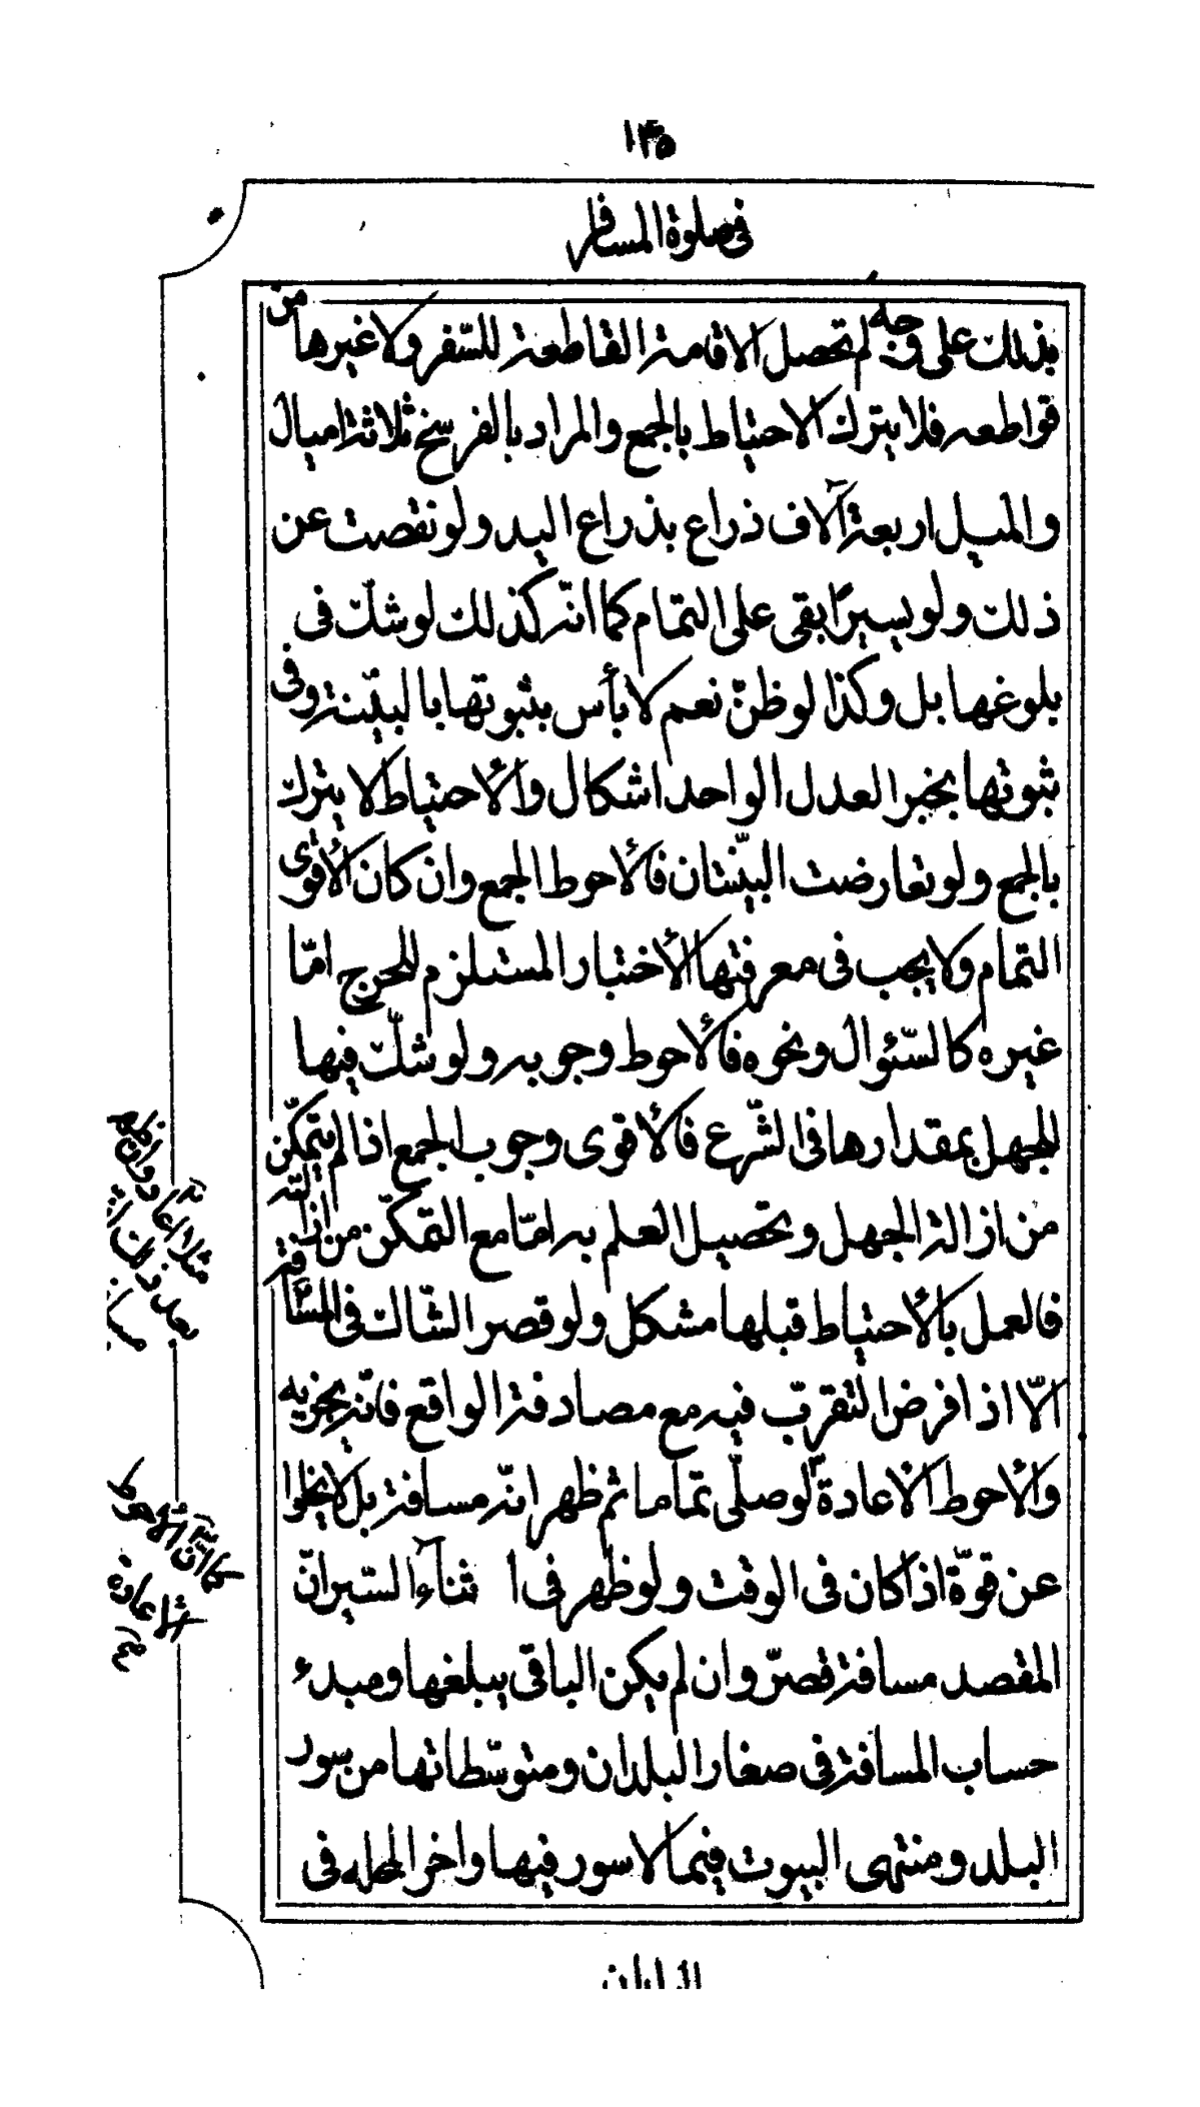 ١٣٥
فى صلوة المسافر
بذلك على وجه لم تحصل الاقامة القاطعة للسّفر ولا غيرها من
قواطعه فلا يترك الاحتياط بالجمع والمراد بالفرسخ ثلاثة اميال
والميل اربعة آلاف ذراع بذراع اليد ولو نقصت عن
ذلك ولو يسيرًا بقى على التمام كما انّه كذلك لو شكّ فى
بلوغها بل وكذا لو ظنّ نعم لا بأس بثبوتها بالبيّنة وفى
ثبوتها بخبر العدل الواحد اشكال والأحتياط لا يترك
بالجمع ولو تعارضت البيّنتان فالأحوط الجمع وان كان الأقوى
التمام ولا يجب فى معرفتها الأختبار المستلزم للحرج امّا
غيره كالسّئوال ونحوه فالأحوط وجوبه ولو شكّ فيها
للجهل بمقدارها فى الشّرع فالأقوى وجوب الجمع اذا لم يتمكّن
من ازالة الجهل وتحصيل العلم به امّا مع التمكّن من ازالته
فالعمل بالأحتياط قبلها مشكل ولو قصر الشّاك فى المسافة
الّا اذا فرض التقرّب فيه مع مصادفة الواقع فانّه يجزيه
والأحوط الأعادة لو صلّى تماما ثم ظهر انّه مسافة بل لا يخلوا
عن قوّة اذا كان فى الوقت ولو ظهر فى اثناء السّير انّ
المقصد مسافة قصرّ وان لم يكن الباقى يبلغها ومبدء
حساب المسافة فى صغار البلدان ومتوسّطاتها من سور
البلد ومنتهى البيوت فيما لا سور فيها واخر المحله فى
مثلا اعاد وان ظهر
بعد ذلك
كما انّ الأحوط
الاعادة
البلدان